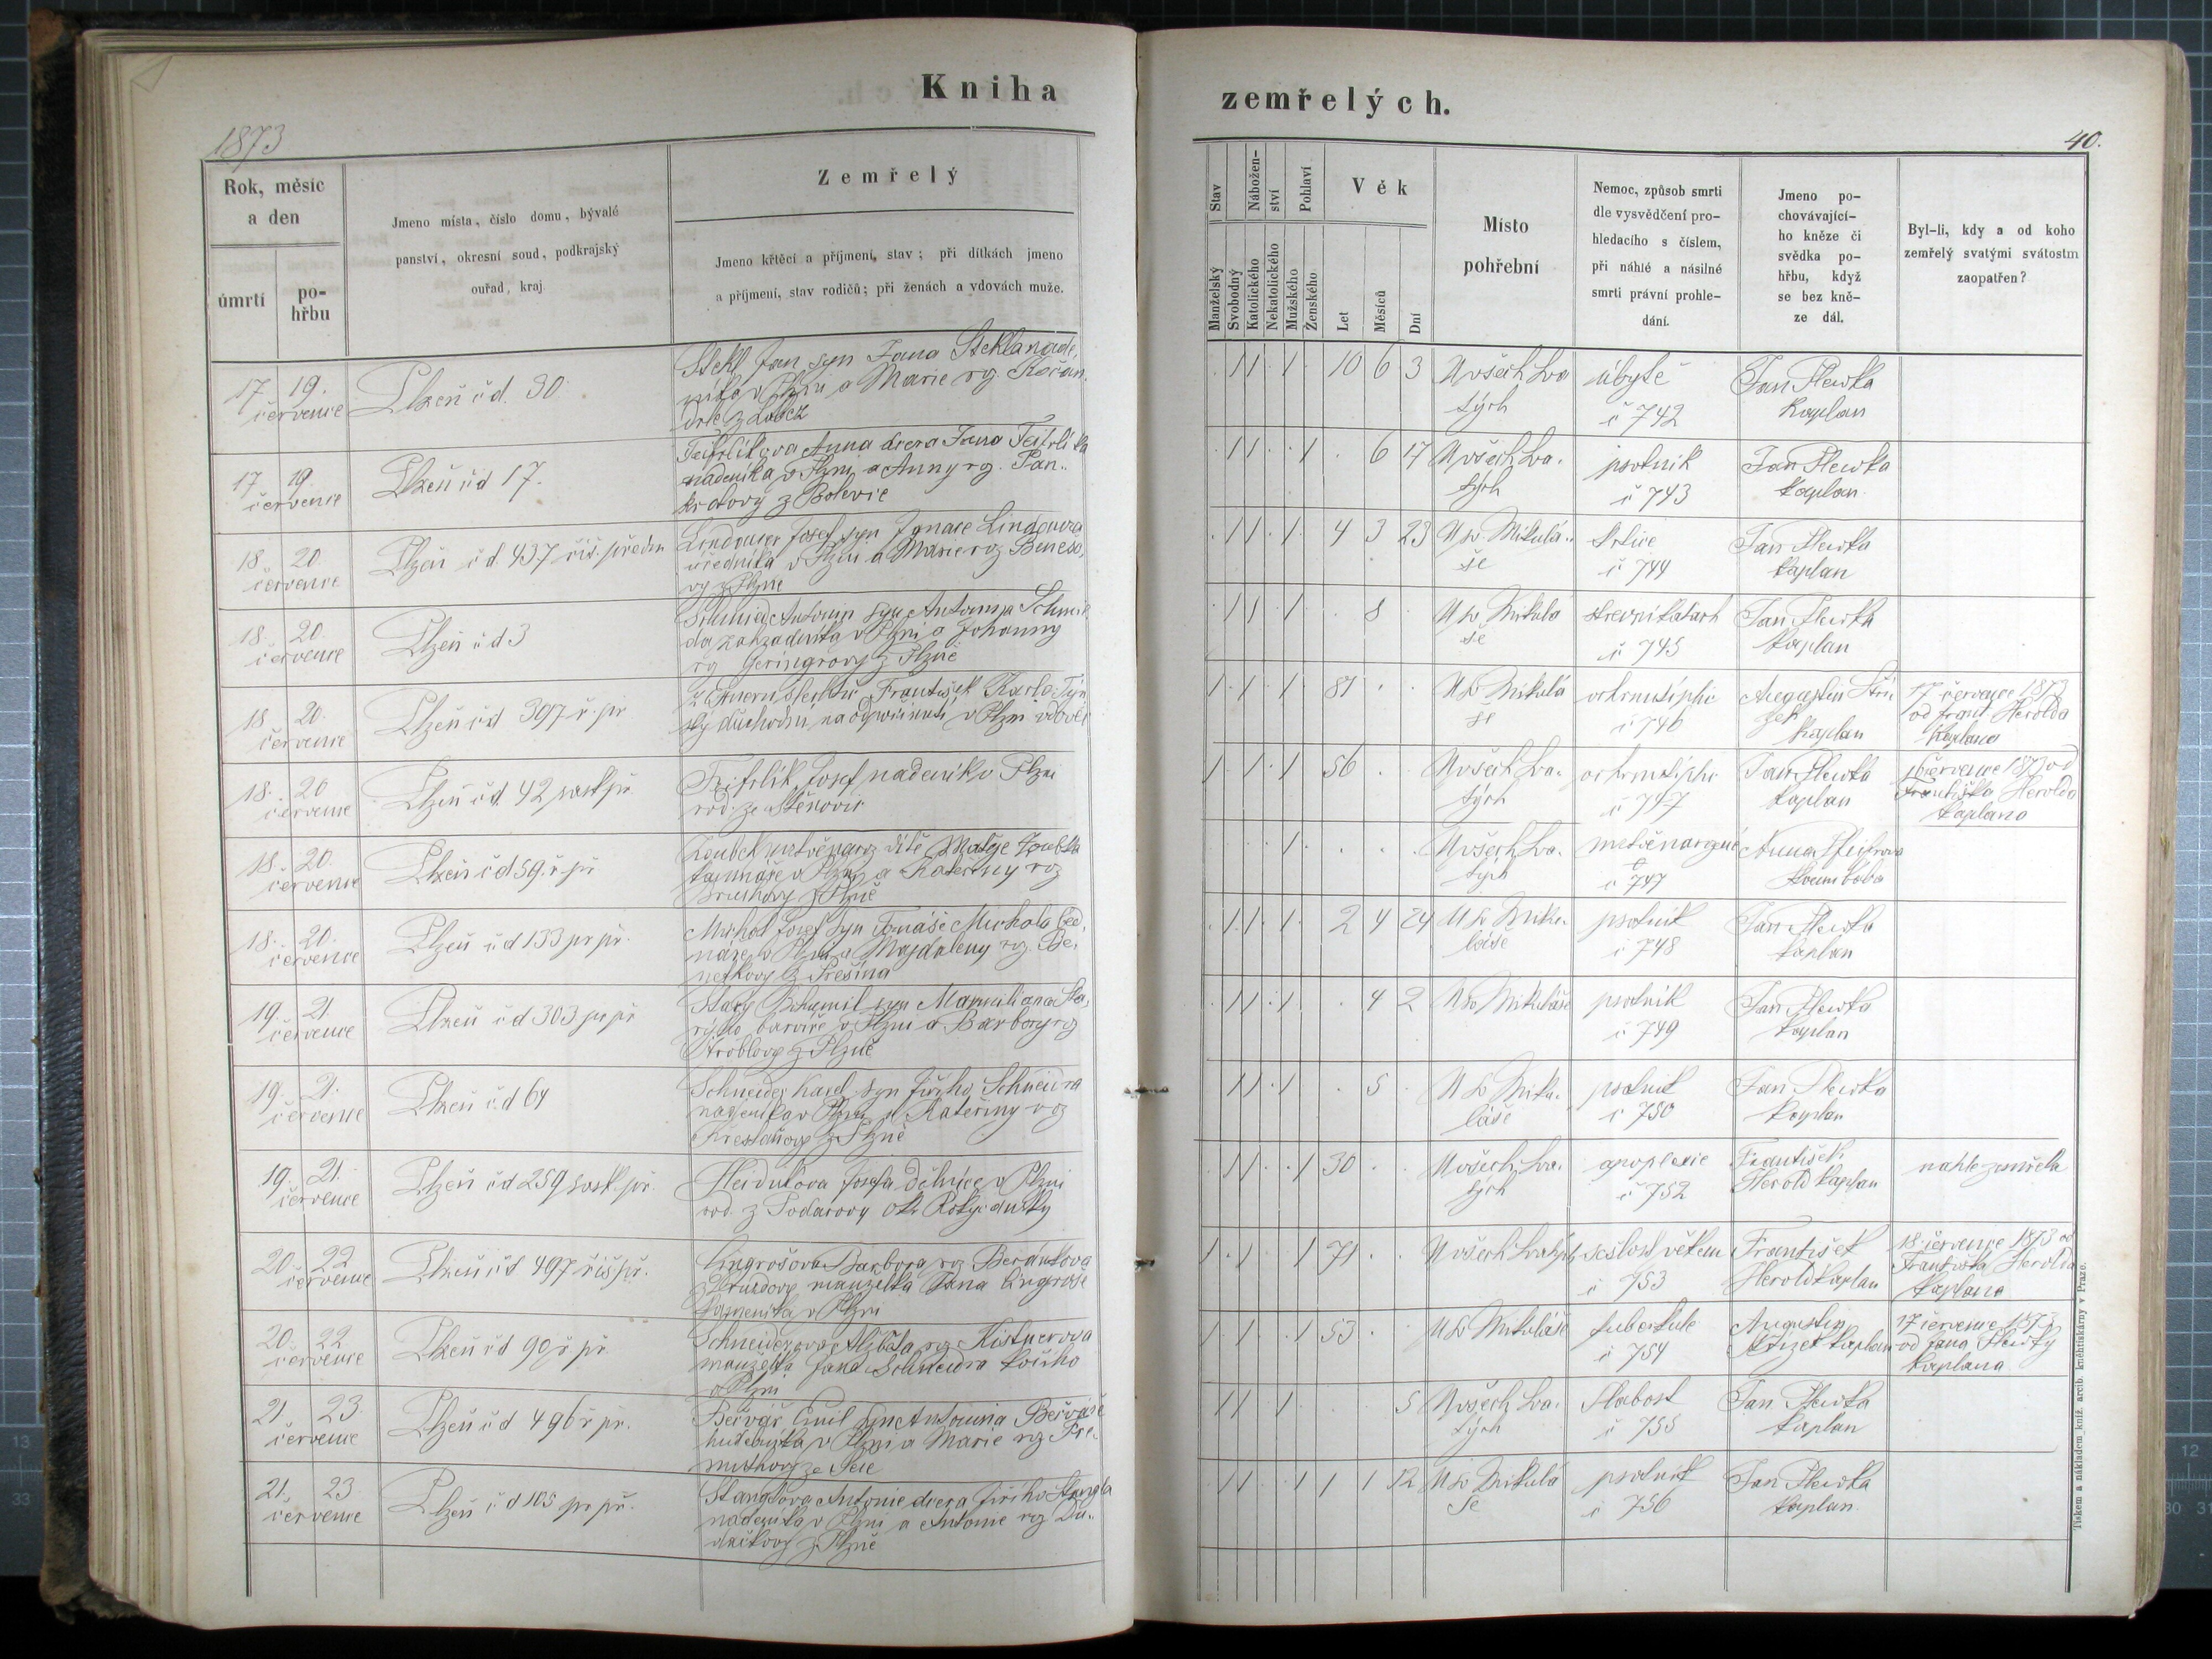 Kniha
zemřelých.
1873
40.
Rok, měsíc
a den
úmrtí
po-
hřbu
Jmeno místa, číslo domu, bývalé
panství, okresní soud, podkrajský
ouřad, kraj.
Zemřelý
Jmeno křtěcí a příjmení, stav; při dítkách jmeno
a příjmení, stav rodičů; při ženách a vdovách muže.
Stav
Manželský
Svobodný
Nábožen-
ství
Katolického
Nekatolického
Pohlaví
Mužského
Ženského
Věk
Let
Měsíců
Dní
Místo
pohřební
Nemoc, způsob smrti
dle vysvědčení pro-
hledacího s číslem,
při náhlé a násilné
smrti právní prohle-
dání.
Jmeno po-
chovávající-
ho kněze či
svědka po-
hřbu, když
se bez kně-
ze dál.
Byl-li, kdy a od koho
zemřelý svatými svátostm
zaopatřen?
17 19.
července
Plzeň čd. 30
Stekl Jan syn Jana Stekla nade,
níka v Plzni a Marie rz. Kočan
drle z Lobez
10 6 3
U všech Sva
tých
úbytě
č 742
Jan Slewka
Kaplan
17 19.
července
Plzeň čd 17.
Feifrlíkova Anna dcera Jana Feifrlíka
nádeníka v Plzni a Anny rz. Pan..
krátovy z Bolevic
6 17
U všech Sva.
tých
psotník
č 743
Jan Slewka
kaplan
18 20.
července
Plzeň čd. 437 říš. předm
Lindauer Josef syn Ignace Lindauera
úředníka v Plzni a Marie rz Beneso,
vy z Plzne
4 3 23
U sv. Mikulá..
še
krtice
č 744
Jan Slewka
kaplan
18. 20.
července
Plzeň čd 3
Schmied Antonín syn Antonína Schmie
da zahradníka v Plzni a Johanny
rz Geringrovy z Plzně
8
U sv Mikulá
še
střevní katarh
č 745
Jan Slewka
kaplan
18 20.
července
Plzeň čd 397 ř. pr
František Karlo Týn
ský důchodní na odpočinutí v Plzni vdovec
81
U sv Mikulá
še
ochrnutí plic
č 746
Augustin Stří
žek
Kaplan
17 července 1873
od Frant Herolda
Kaplana
18. 20
července
Plzeň čd. 42 sask př
Feifrlík Josef nádeník v Plzni
rod. ze Štěnovic
56
U všech Sva.
tých
ochrnutí plic
č 747
Jan Slewka
kaplan
16 července 1873 od
Františka Herolda
kaplana
18. 20.
července
Plzeň čd 59. ř př
Zoubek mrtvěnaroz dítě Matěje Zoubka
v Plzni a Kateřiny roz
z Plzně
U všech Sva.
tých
mrtvěnarozené
č 747
Anna
bába
18. 20.
července
Plzeň čd 133 pr př.
Muchal Josef syn Tomáše Muchala bed,
náře v Plzni a Magdaleny rz. Be,
netkovy z Přešína
2 4 24
U sv Miku.
láše
psotník
č 748
Jan Slewka
kaplan
19. 21.
července
Plzeň čd 303 pr př
Starý Bohumil syn Maxmiliana Sta,
rýho barvíře v Plzni a Barbory rz
Ströblovy z Plzně
4 2
U sv Mikuláše
psotník
č 749
Jan Slewka
kaplan
19. 21.
července
Plzeň čd 64
Schneider Karel syn Jiřího Schneidra
nádeníka v Plzni a Kateřiny roz
Křesťanovy z Plzně
5
U sv Miku.
láše
psotník
č 750
Jan Slewka
kaplan
19. 21.
července
Plzeň čd 259 sask. př.
Heidukova Josefa dělnice v Plzni
rod. z okr Rokycanský
30
U všech Sva.
tých
apoplexie
č 752
František
Herold kaplan
náhle zemřela
20. 22
července
Plzeň čd 497 říš př.
Ungrošova Barbora rz Beránkova
z manzelka Jana Ungroše
kameníka v Plzni
71
U všech Svatých
sešlost věkem
č 753
František
Herold kaplan
18 července 1873 od
Františka Herolda
kaplana
20. 22
července
Plzeň čd 90 ř př
Schneiderova Alžběta rz Kistnerova
manželka Jana Schneidra kočího
v Plzni
53
U sv Mikuláše
tuberkule
č 754
Augustin
Střížek kaplan
17 července 1873
od Jana Slewky
kaplana
21. 23.
července
Plzeň čd 496 ř př.
Bečvář Emil syn Antonína Bečváře
hudebníka v Plzni a Marie rz
5
U všech Sva.
tých
slabost
č 755
Jan Slewka
kaplan
21. 23
července
Plzeň čd 105 pr př.
Stanglova Antonie dcera Jiřího Stangla
nádeníka v Plzni a Antonie rz Du..
dáčkovy z Plzně
1 1 12
U sv Mikulá
še
psotník
č 756
Jan Slewka
kaplan.
Tiskem a nákladem kníž. arcib. knihtiskárny v Praze.